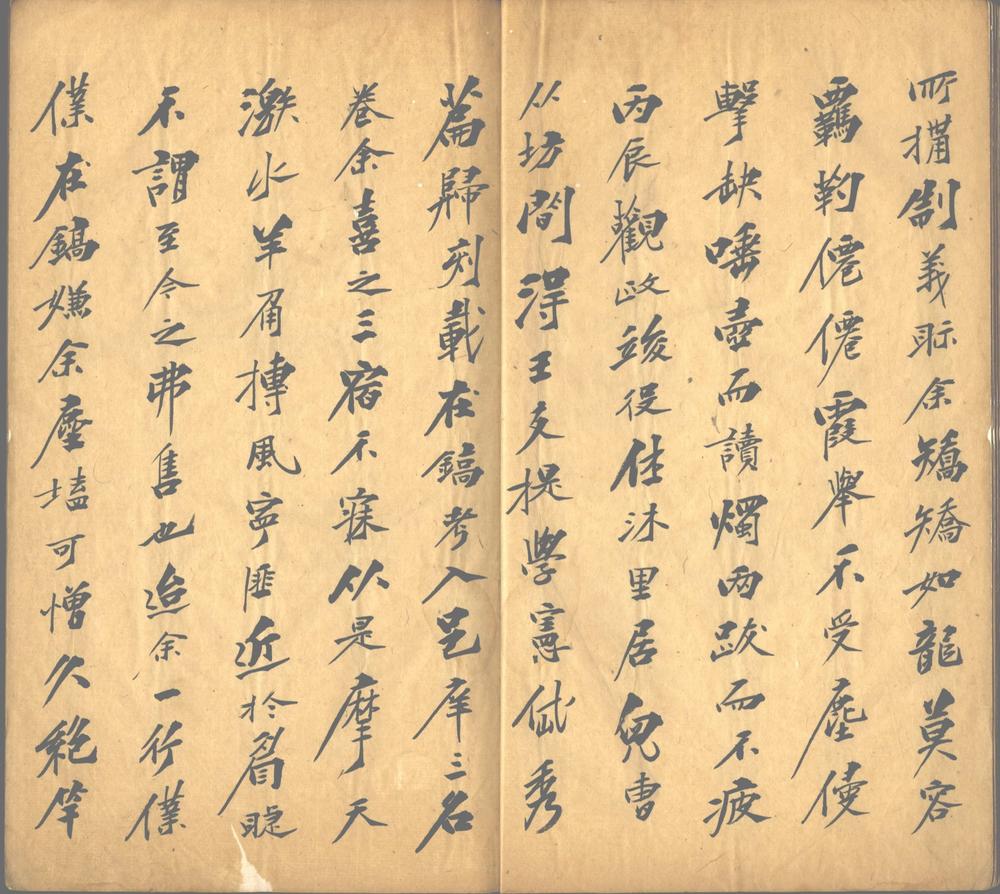 所搆制義眎余矯矯如龍莫容
羈靮僊僊霞舉不受塵
擊缺唾壺而讀燭兩跋而不疲
丙辰觀政竣役佳沐里居兒曹
从坊間淂王文提學憲試秀
篇歸刻載在鎬考入邑庠三名
卷余喜之三宿不寐从是摩天
激水羊角摶風寧匪近於眉睫
不謂至今之弗售也迨余一行僕
僕在鎬嫌余塵壒可憎久絕竿